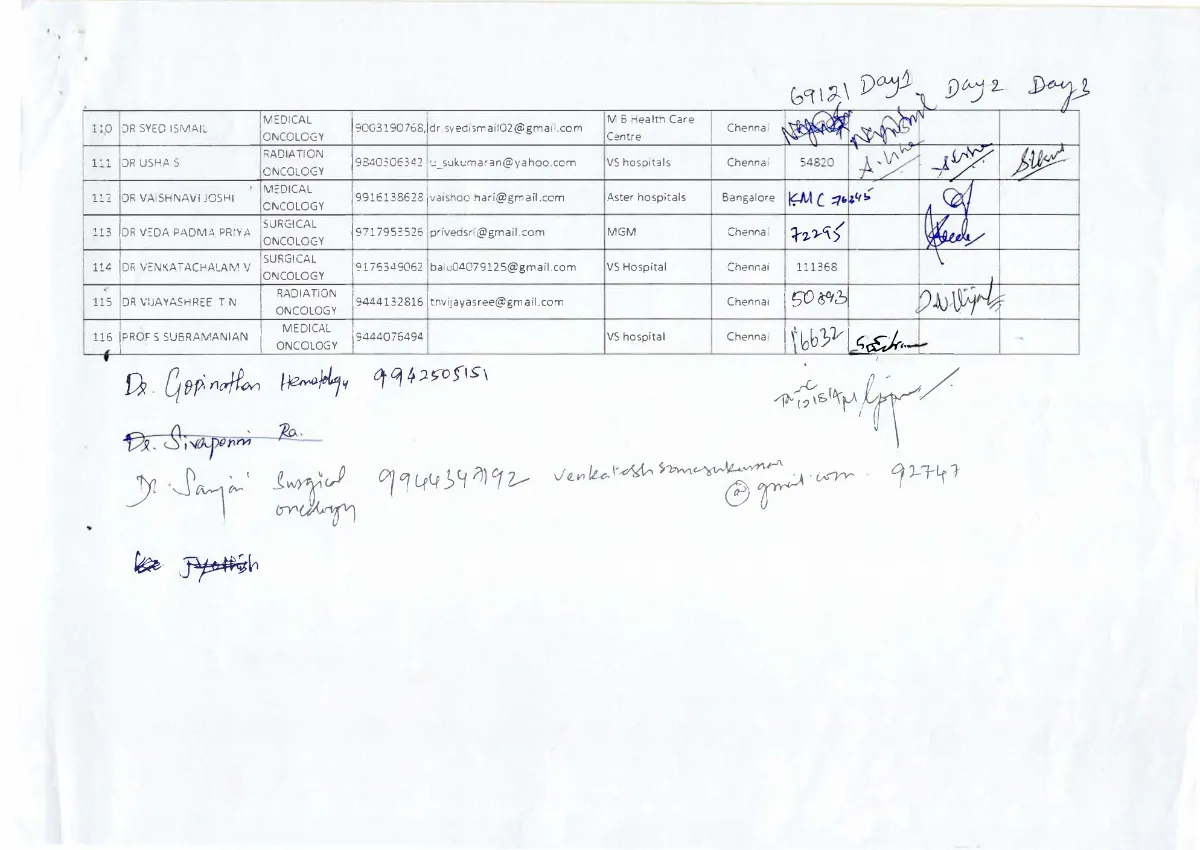 69121 Day1 Day 2 Day 3
110 DR SYED ISMAIL MEDICAL ONCOLOGY 9003190768, dr.syedismail02@gmail.com M B Health Care Centre Chennai
111 DR USHA S RADIATION ONCOLOGY 9840306342 u_sukumaran@yahoo.com VS hospitals Chennai 54820
112 DR VAISHNAVI JOSHI MEDICAL ONCOLOGY 9916138628 vaishoo.hari@gmail.com Aster hospitals Bangalore KMC 76245
113 DR VEDA PADMA PRIYA SURGICAL ONCOLOGY 9717953526 privedsri@gmail.com MGM Chennai 72295
114 DR VENKATACHALAM V SURGICAL ONCOLOGY 9176349062 balu04079125@gmail.com VS Hospital Chennai 111368
115 DR VIJAYASHREE T N RADIATION ONCOLOGY 9444132816 tnvijayasree@gmail.com Chennai 50893
116 PROF S SUBRAMANIAN MEDICAL ONCOLOGY 9444076494 VS hospital Chennai 16632
Dr. Gopinathan Hematology 9942505151
Dr. Sivaponni Ra.
Dr. Sanjai Surgical oncology 9944347192 @gmail.com. 92747
Jyothish